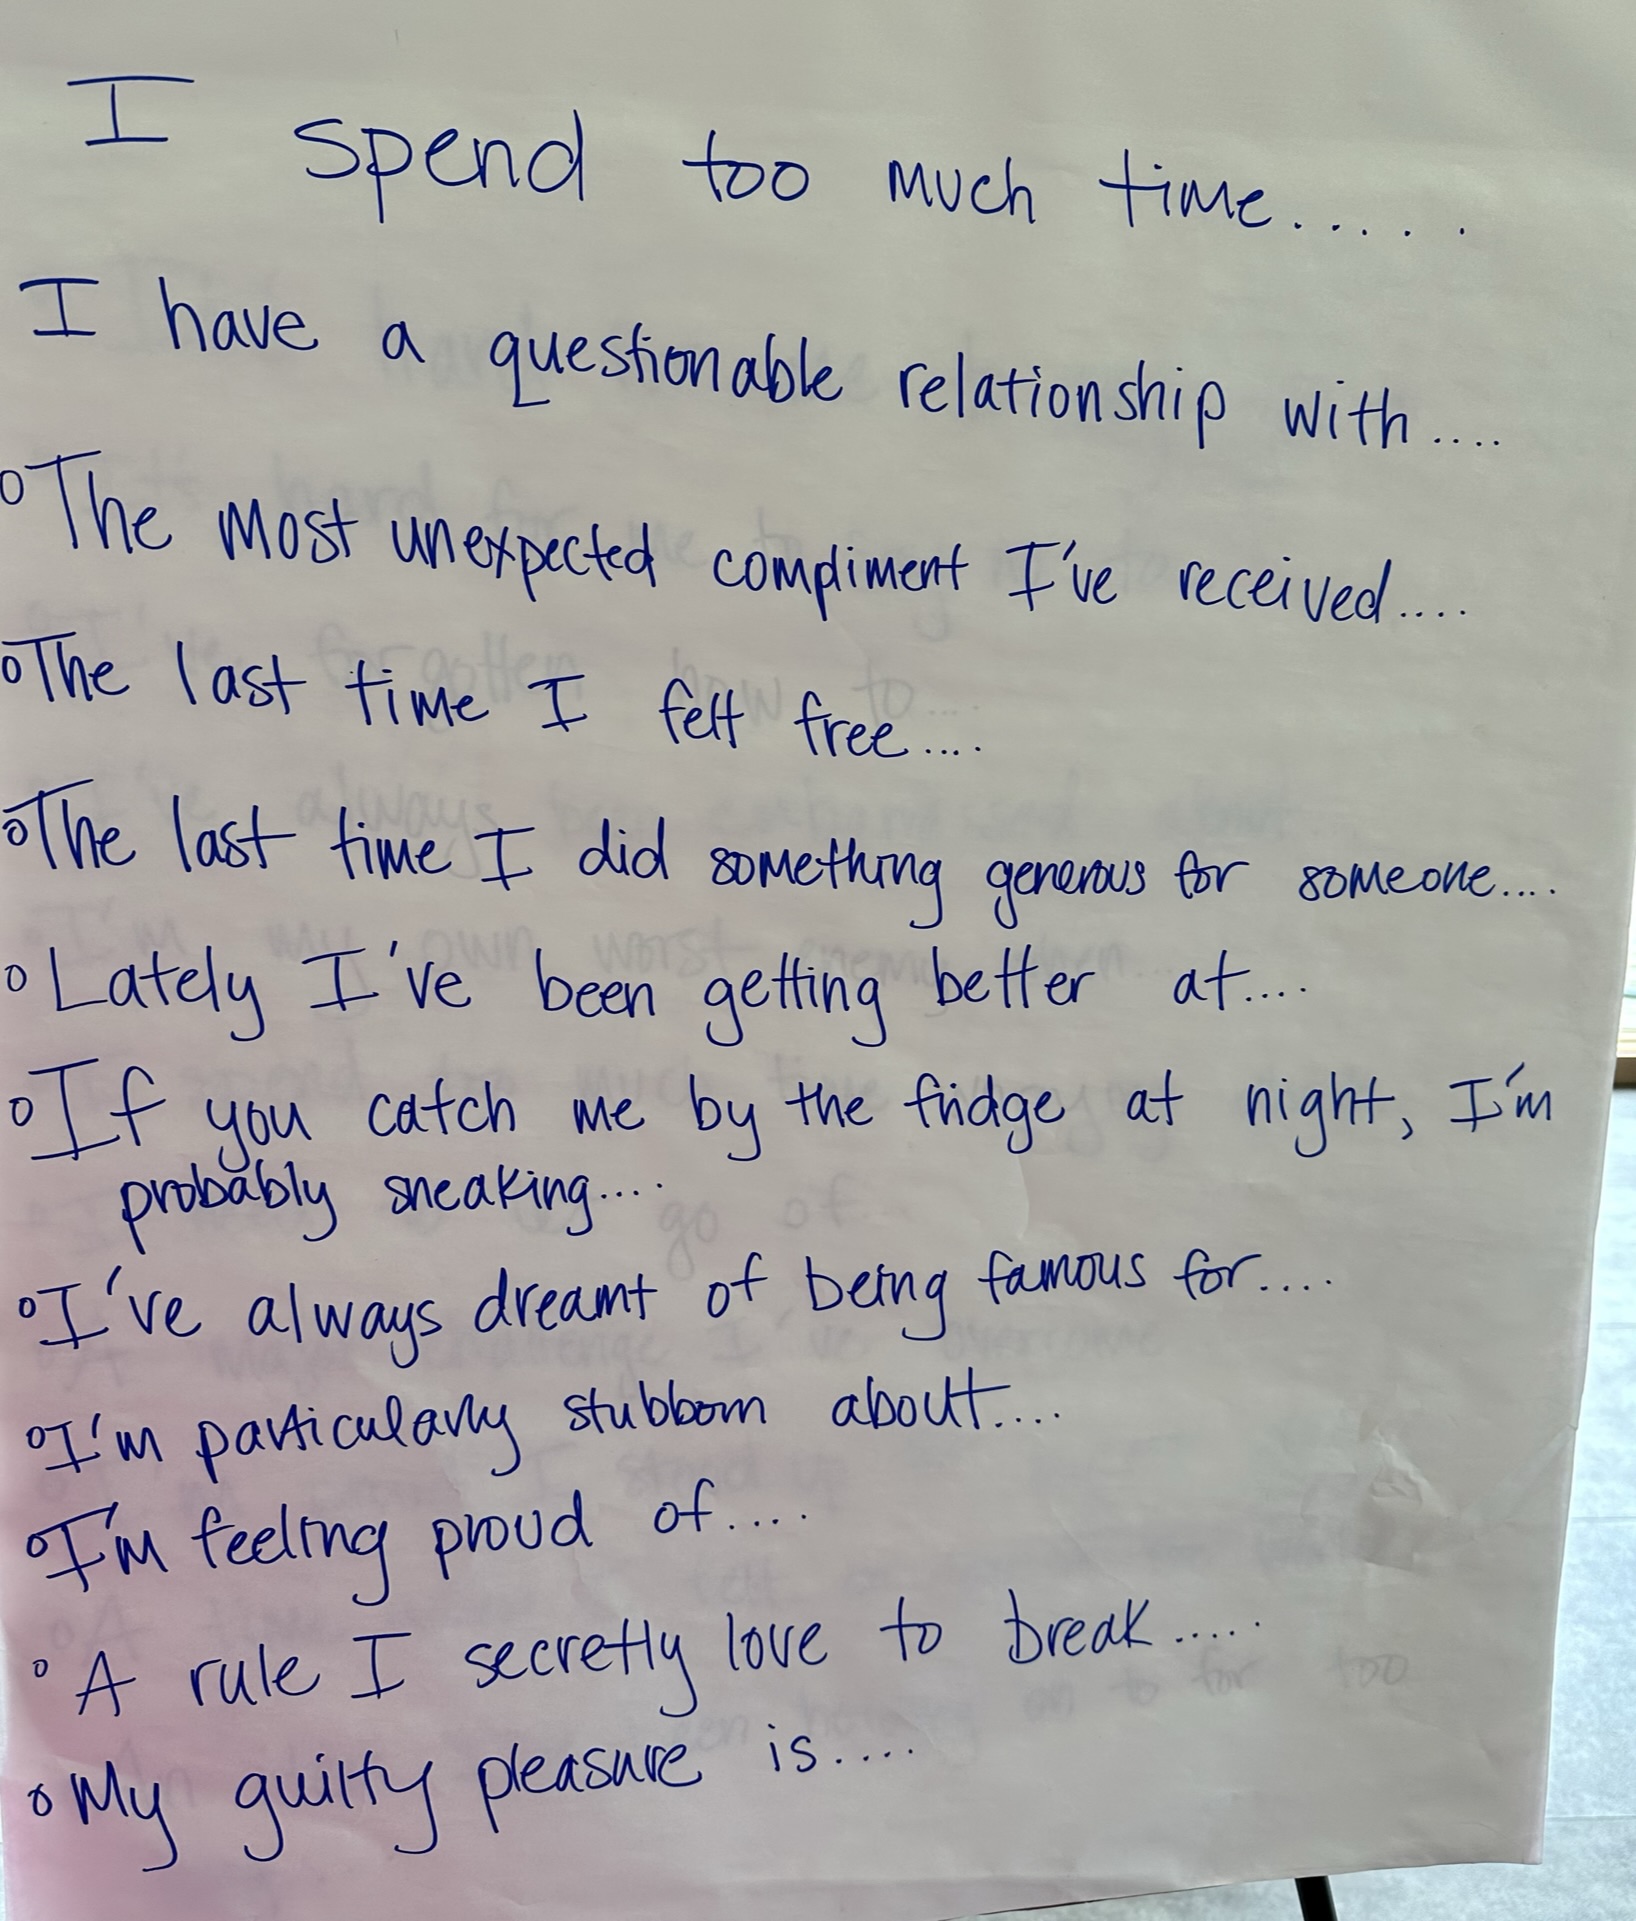 I spend too much time.....
I have a questionable relationship with....
The most unexpected compliment I've received....
The last time I felt free....
The last time I did something generous for someone....
Lately I've been getting better at....
If you catch me by the fridge at night, I'm
probably sneaking....
I've always dreamt of being famous for....
I'm particularly stubborn about....
I'm feeling proud of....
A rule I secretly love to break.....
My guilty pleasure is....